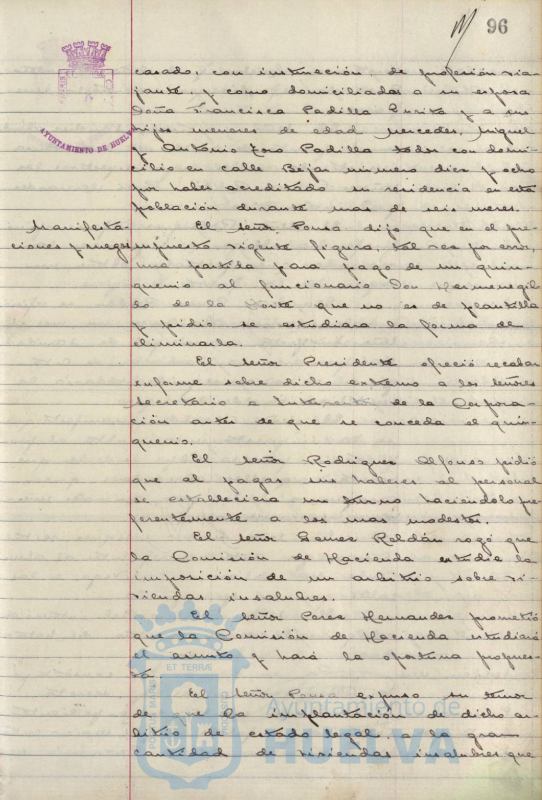 96
AYUNTAMIENTO DE HUELVA
casado, con instrucción, de profesión via-
jante, y como domiciliados a su esposa
Doña Francisca Padilla Zurita y a sus
hijos menores de edad Mercedes, Miguel
y Antonio Toro Padilla todos con domi-
cilio en calle Béjar número diez y ocho
por haber acreditado su residencia en esta
población durante mas de seis meses.
Manifesta-
ciones y ruegos
El señor Ponsa dijo que en el pre-
supuesto vigente figura, tal vez por error,
una partida para pago de un quin-
quenio al funcionario Don Hermenegil-
do de la Corte, que no es de plantilla
y pidió se estudiara la forma de
eliminarla.
El señor Presidente ofreció recabar
informe sobre dicho extremo a los señores
Secretario e Interventor de la Corpora-
ción antes de que se conceda el quin-
quenio.
El señor Rodriguez Alfonso pidió
que al pagar sus haberes al personal
se estableciera un turno haciendolo pre-
ferentemente a los mas modestos.
El señor Gomez Roldán rogó que
la Comisión de Hacienda estudie la
imposición de un arbitrio sobre vi-
viendas insalubres.
El señor Perez Hernandez prometió
que la Comisión de Hacienda estudiará
el asunto y hará la oportuna propues-
ta.
El señor Ponsa expuso su temor
de que la implantación de dicho ar-
bitrio de estado legal a la gran
cantidad de viviendas insalubres que
ET TERRAE
Ayuntamiento de
HUELVA